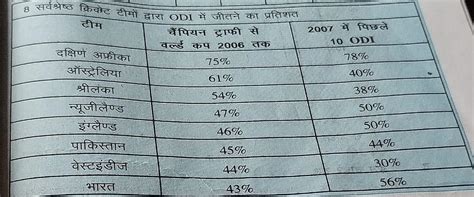 8 सर्वश्रेष्ठ क्रिकेट टीमों द्वारा ODI में जीतने का प्रतिशत
टीम चैंपियन ट्राफी से 2007 में पिछले
वर्ल्ड कप 2006 तक 10 ODI
दक्षिण अफ्रीका 75% 78%
ऑस्ट्रेलिया 61% 40%
श्रीलंका 54% 38%
न्यूजीलैण्ड 47% 50%
इंग्लैण्ड 46% 50%
पाकिस्तान 45% 44%
वेस्टइंडीज 44% 30%
भारत 43% 56%